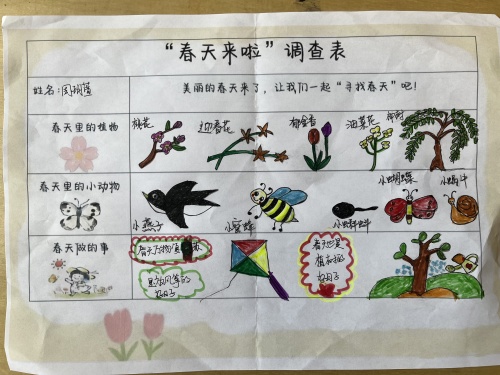 “春天来啦”调查表
姓名:
美丽的春天来了，让我们一起“寻找春天”吧！
春天里的植物
桃花
迎春花
郁金香
油菜花
柳树
春天里的小动物
小燕子
小蜜蜂
小蝌蚪
小蝴蝶
小蜗牛
春天做的事
春天
放风筝的
好日子
春天是
植树的
好日子